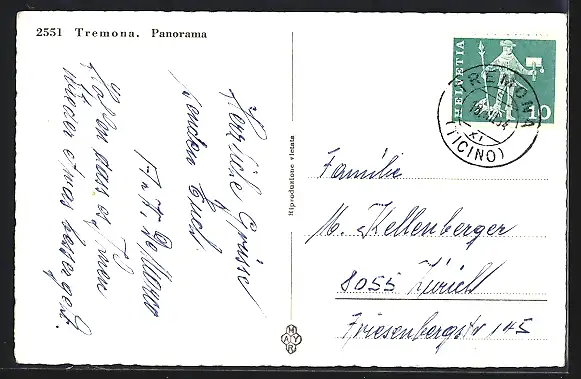 2551 Tremona. Panorama
Herzliche Grüsse
senden Euch
Fam. De Marco
Hoffen dass es Ihnen
wieder etwas besser geht.
Riproduzione vietata
HELVETIA
10
TREMONA
(TICINO)
Familie
M. Kellenberger
8055 Zürich
Friesenbergstr 145